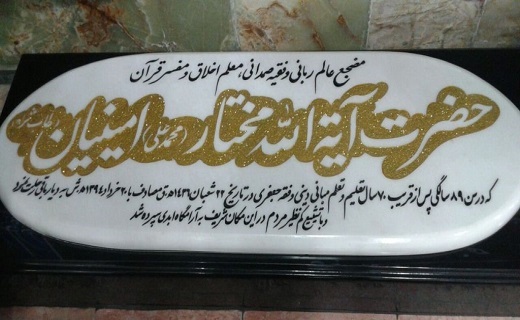 مضجع عالم ربانی و فقیه صمدانی، معلم اخلاق و مفسر قرآن
حضرت آیة الله مختار (محمدعلی) امینیان
که در سن ۸۹ سالگی پس از قریب ۷۰ سال تعلیم و تعلم مبانی دینی و فقه جعفری در تاریخ ۲۲ شعبان ۱۴۳۶ ه‍.ق مصادف با ۲۰ خرداد ۱۳۹۴ ه‍.ش به دیار باقی رحلت نمود
و با تشییع کم نظیر مردم در این مکان شریف به آرامگاه ابدی سپرده شد